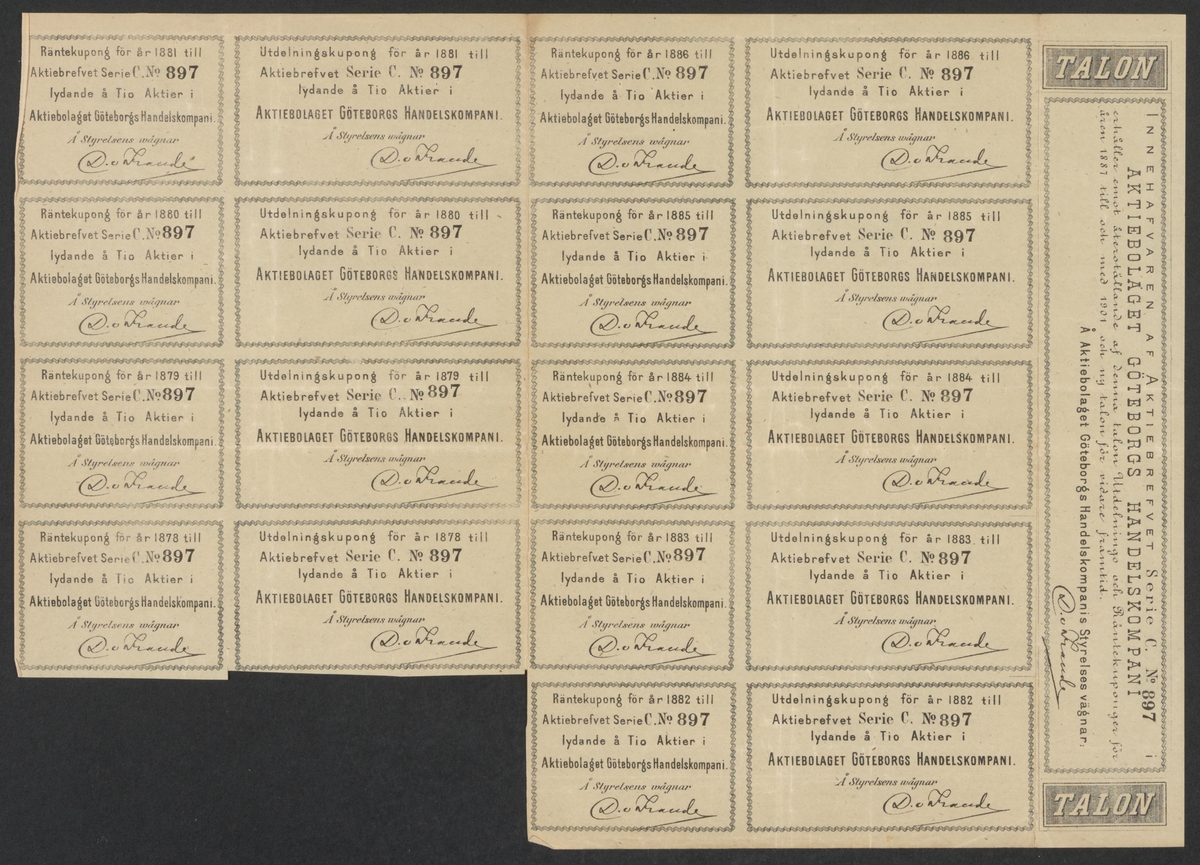 Räntekupong för år 1881 till
Aktiebrefvet Serie C. No 897
lydande å Tio Aktier i
Aktiebolaget Göteborgs Handelskompani.
Å Styrelsens wägnar
Utdelningskupong för år 1881 till
Aktiebrefvet Serie C. No 897
lydande å Tio Aktier i
AKTIEBOLAGET GÖTEBORGS HANDELSKOMPANI.
Å Styrelsens wägnar
Räntekupong för år 1886 till
Aktiebrefvet Serie C. No 897
lydande å Tio Aktier i
Aktiebolaget Göteborgs Handelskompani.
Å Styrelsens wägnar
Utdelningskupong för år 1886 till
Aktiebrefvet Serie C. No 897
lydande å Tio Aktier i
AKTIEBOLAGET GÖTEBORGS HANDELSKOMPANI.
Å Styrelsens wägnar
Räntekupong för år 1880 till
Aktiebrefvet Serie C. No 897
lydande å Tio Aktier i
Aktiebolaget Göteborgs Handelskompani.
Å Styrelsens wägnar
Utdelningskupong för år 1880 till
Aktiebrefvet Serie C. No 897
lydande å Tio Aktier i
AKTIEBOLAGET GÖTEBORGS HANDELSKOMPANI.
Å Styrelsens wägnar
Räntekupong för år 1885 till
Aktiebrefvet Serie C. No 897
lydande å Tio Aktier i
Aktiebolaget Göteborgs Handelskompani.
Å Styrelsens wägnar
Utdelningskupong för år 1885 till
Aktiebrefvet Serie C. No 897
lydande å Tio Aktier i
AKTIEBOLAGET GÖTEBORGS HANDELSKOMPANI.
Å Styrelsens wägnar
Räntekupong för år 1879 till
Aktiebrefvet Serie C. No 897
lydande å Tio Aktier i
Aktiebolaget Göteborgs Handelskompani.
Å Styrelsens wägnar
Utdelningskupong för år 1879 till
Aktiebrefvet Serie C. No 897
lydande å Tio Aktier i
AKTIEBOLAGET GÖTEBORGS HANDELSKOMPANI.
Å Styrelsens wägnar
Räntekupong för år 1884 till
Aktiebrefvet Serie C. No 897
lydande å Tio Aktier i
Aktiebolaget Göteborgs Handelskompani.
Å Styrelsens wägnar
Utdelningskupong för år 1884 till
Aktiebrefvet Serie C. No 897
lydande å Tio Aktier i
AKTIEBOLAGET GÖTEBORGS HANDELSKOMPANI.
Å Styrelsens wägnar
Räntekupong för år 1878 till
Aktiebrefvet Serie C. No 897
lydande å Tio Aktier i
Aktiebolaget Göteborgs Handelskompani.
Å Styrelsens wägnar
Utdelningskupong för år 1878 till
Aktiebrefvet Serie C. No 897
lydande å Tio Aktier i
AKTIEBOLAGET GÖTEBORGS HANDELSKOMPANI.
Å Styrelsens wägnar
Räntekupong för år 1883 till
Aktiebrefvet Serie C. No 897
lydande å Tio Aktier i
Aktiebolaget Göteborgs Handelskompani.
Å Styrelsens wägnar
Utdelningskupong för år 1883 till
Aktiebrefvet Serie C. No 897
lydande å Tio Aktier i
AKTIEBOLAGET GÖTEBORGS HANDELSKOMPANI.
Å Styrelsens wägnar
Räntekupong för år 1882 till
Aktiebrefvet Serie C. No 897
lydande å Tio Aktier i
Aktiebolaget Göteborgs Handelskompani.
Å Styrelsens wägnar
Utdelningskupong för år 1882 till
Aktiebrefvet Serie C. No 897
lydande å Tio Aktier i
AKTIEBOLAGET GÖTEBORGS HANDELSKOMPANI.
Å Styrelsens wägnar
TALON
INNEHAFVAREN AF AKTIEBREFVET Serie C. No 897 i
AKTIEBOLAGET GÖTEBORGS HANDELSKOMPANI
erhåller emot återställande af denna talon Utdelnings och Räntekuponger för
åren 1887 till och med 1901 och ny talon för vidare framtid.
Å Aktiebolaget Göteborgs Handelskompanis Styrelses vägnar.
TALON